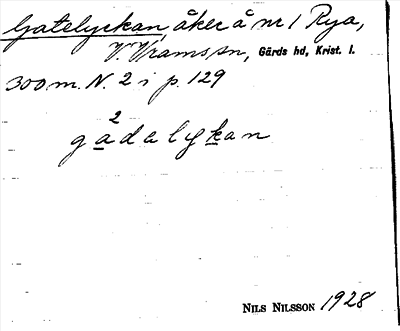 Gatelyckan åker å nr 1 Rya,
V. Vrams sn, Gärds hd, Krist. l.
300 m. N. 2 i p. 129
2
gadalykan
NILS NILSSON 1928